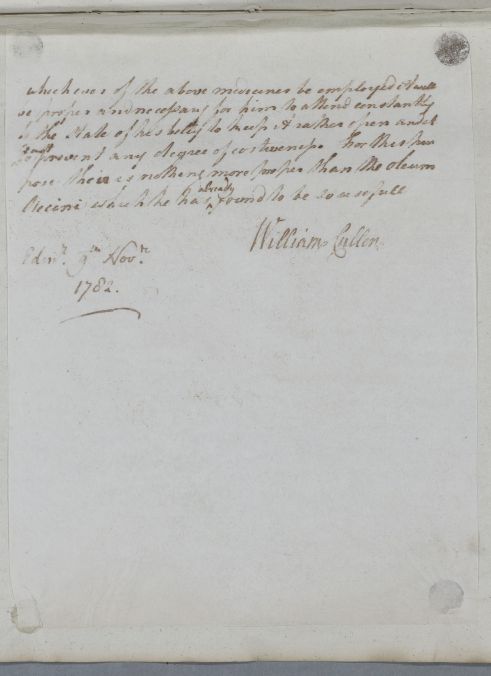 whichever of the above medicines be employed it will
be proper and necessary for him to attend constantly
to the State of his belly to keep it rather open and at
least
to prevent any degree of costiveness. For this pur
pose their is nothing more proper than the oleum
already
Riccini which he has found to be so usefull
William Cullen
Edinr. 9th Novr.
1782.